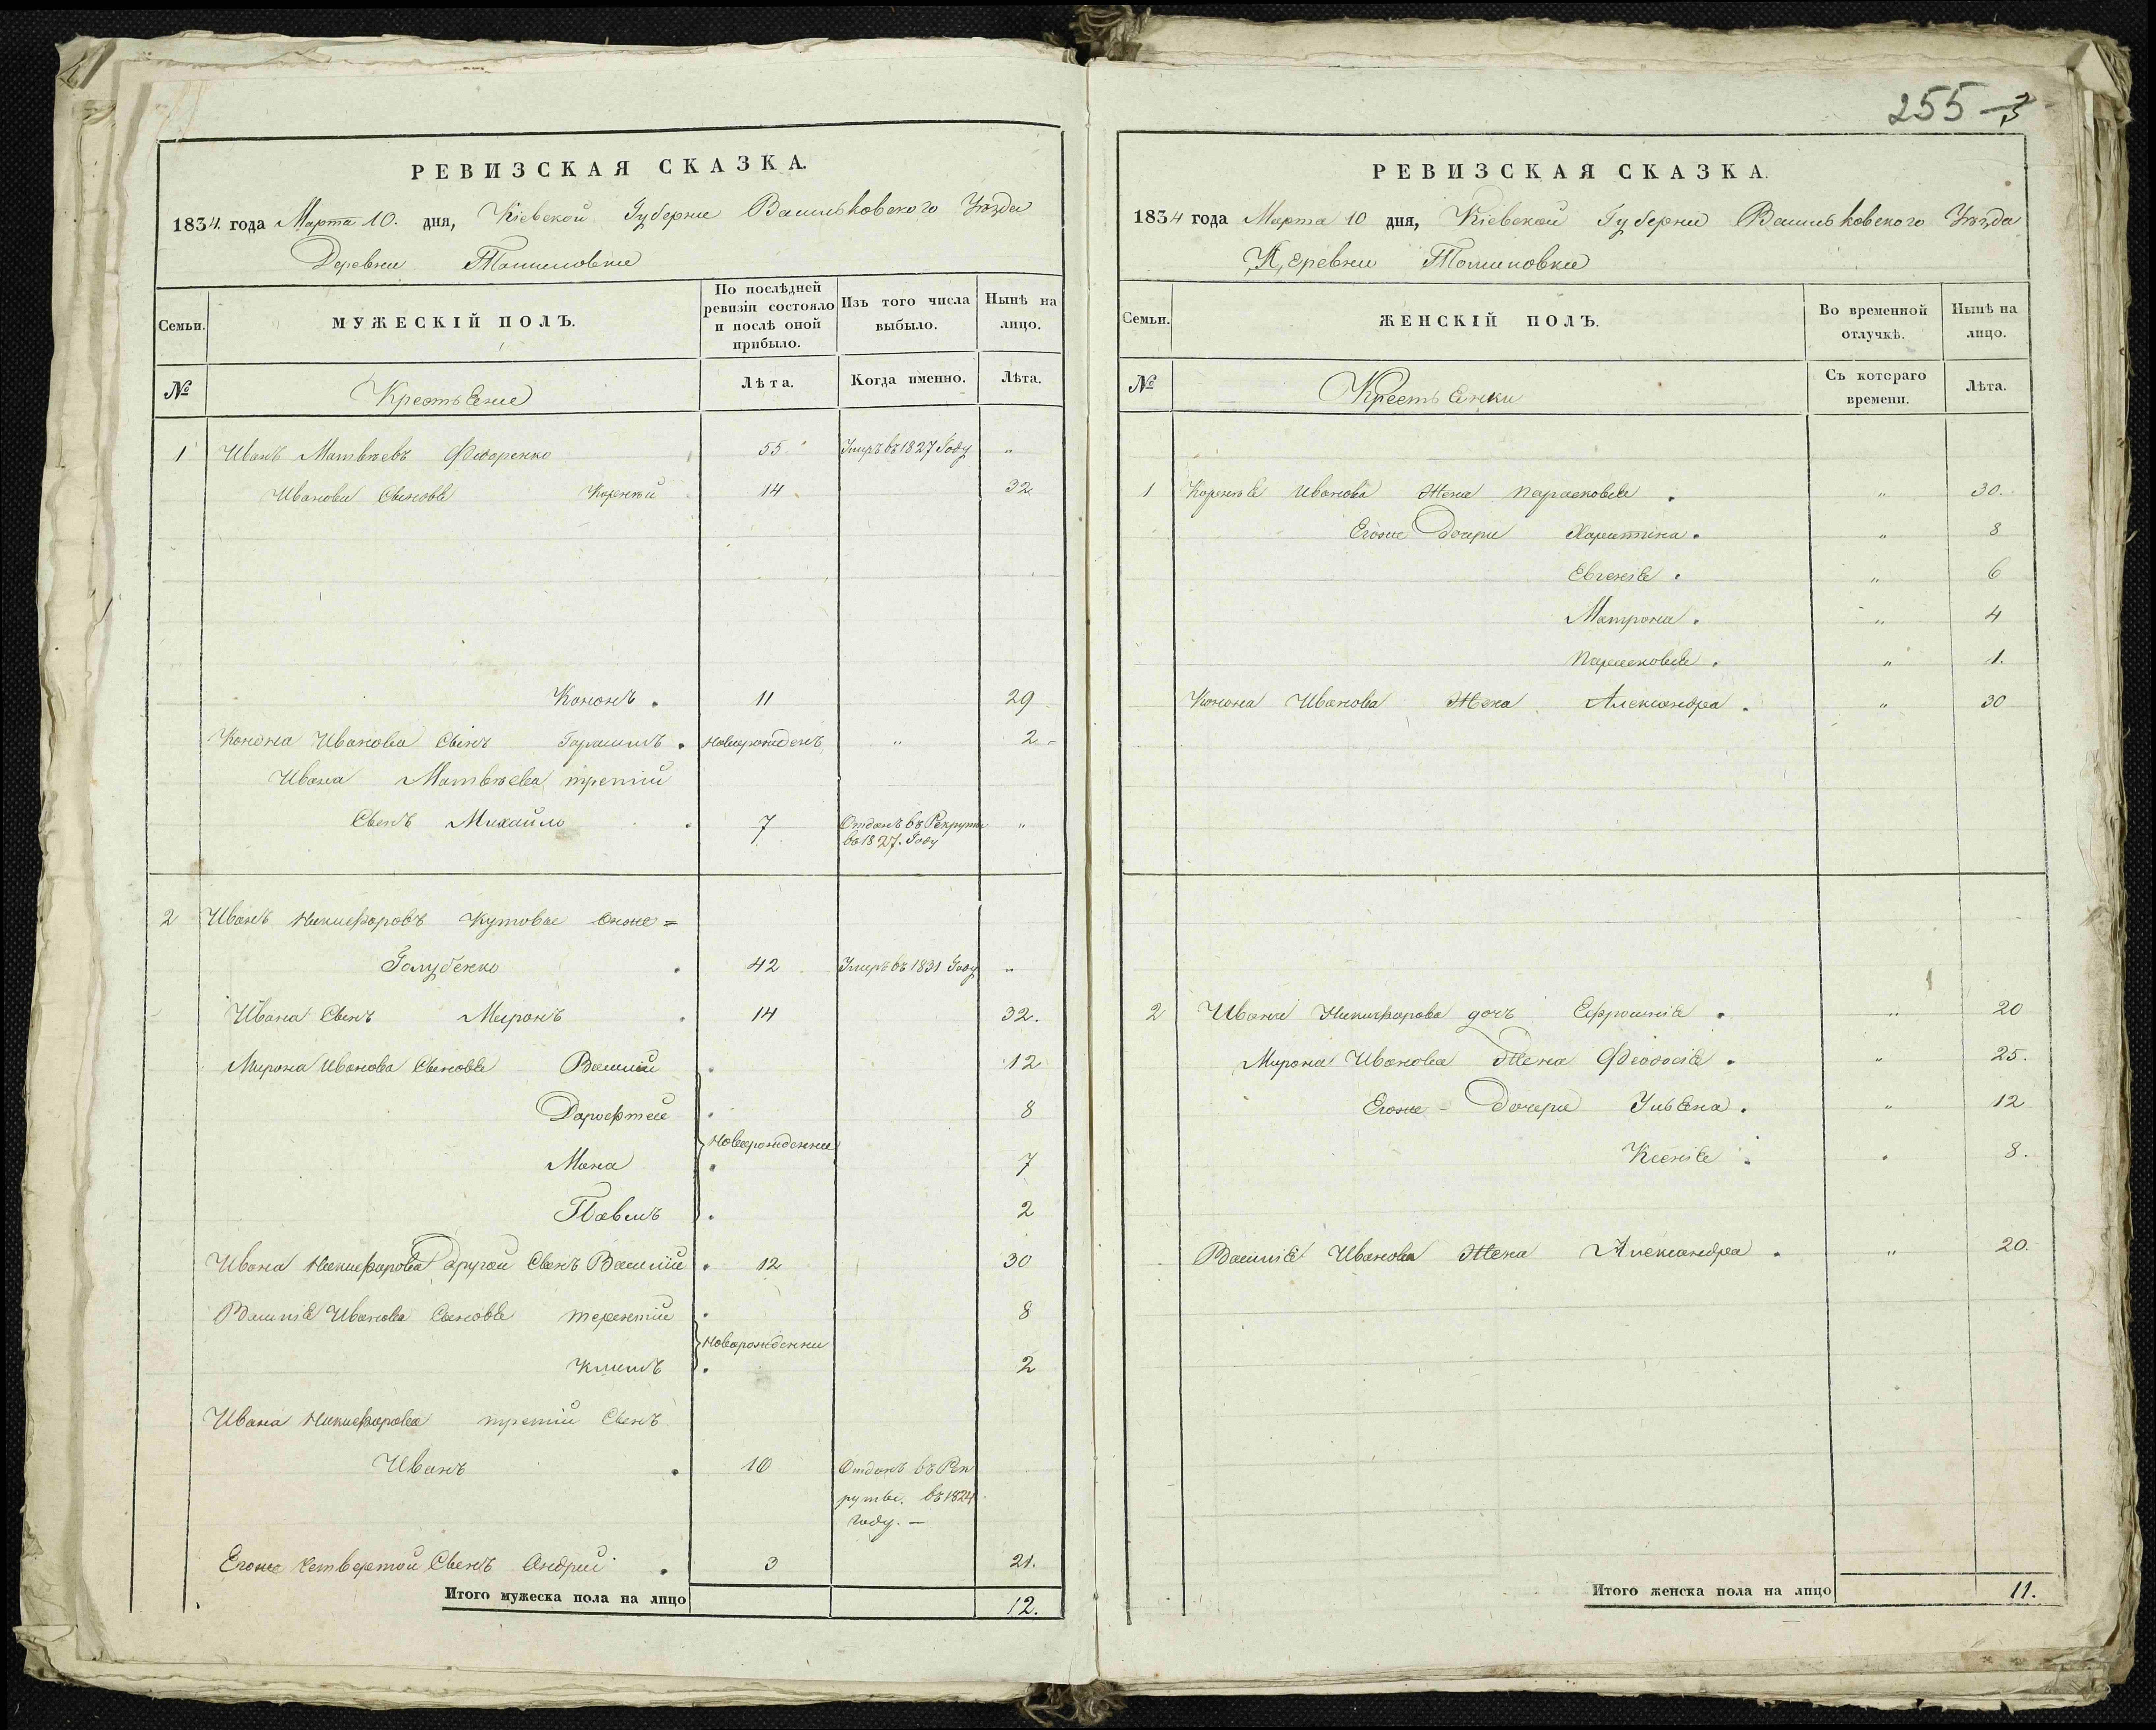 РЕВИЗСКАЯ СКАЗКА.
1834. года Марта 10. дня, Кіевской Губерни Васильковского Уѣзда
Деревни
Семьи.
МУЖЕСКІЙ ПОЛЪ.
По послѣдней ревизіи состояло и послѣ оной прибыло.
Изъ того числа выбыло.
Нынѣ на лицо.
№
Крестьяне
Лѣта.
Когда именно.
Лѣта.
1 Иванъ Матвѣевъ Федоренко 55 Умръ въ 1827 Году "
Иванови Сыновья 14 32
Кононъ. 11 29
Конона Иванова Сынъ Гарасимъ. новорожденъ " 2
Ивана Матвѣева третий
Сынъ Михайло 7 Отданъ въ Рекруты "
въ 1827. Году
2 Иванъ Никифоровъ Кутовые онже=
Голубенко 42 Умеръ въ 1831 Году "
Ивана Сынъ Миронъ 14 32.
Мирона Иванова Сыновья Василий 12
Дорофтей 8
Новорожденни
Мана 7
Павелъ 2
Ивана Никифорова Другой Сынъ Василий 12 30
Василія Иванова Сыновья терентий 8
Новорожденни
Климъ 2
Ивана Никифорова третий Сынъ
Иванъ 10 Отданъ въ Рек
руты. въ 1824
году. —
Егоже четвертой Сынъ Андрий 3 21.
Итого мужеска пола на лицо 12.
255 3
РЕВИЗСКАЯ СКАЗКА.
1834 года Марта 10 дня, Кіевской Губерни Васильковского Уѣзда
Деревни
Семьи.
ЖЕНСКІЙ ПОЛЪ.
Во временной отлучкѣ.
Нынѣ на лицо.
№
Крестьянки
Съ котораго времени.
Лѣта.
1 Иванова Жена Парасковія " 30.
Егоже Дочери Харитина. " 8
Евгенія. " 6
Матрона. " 4
Парасковія. " 1.
Конона Иванова Жена Александра. " 30
2 Ивана Никифорова дочь Ефросинія. " 20
Мирона Иванова Жена Феодосія. " 25.
Егоже Дочери Ульяна. " 12
Ксенія. 8.
Василія Иванова Жена Александра. " 20.
Итого женска пола на лицо 11.